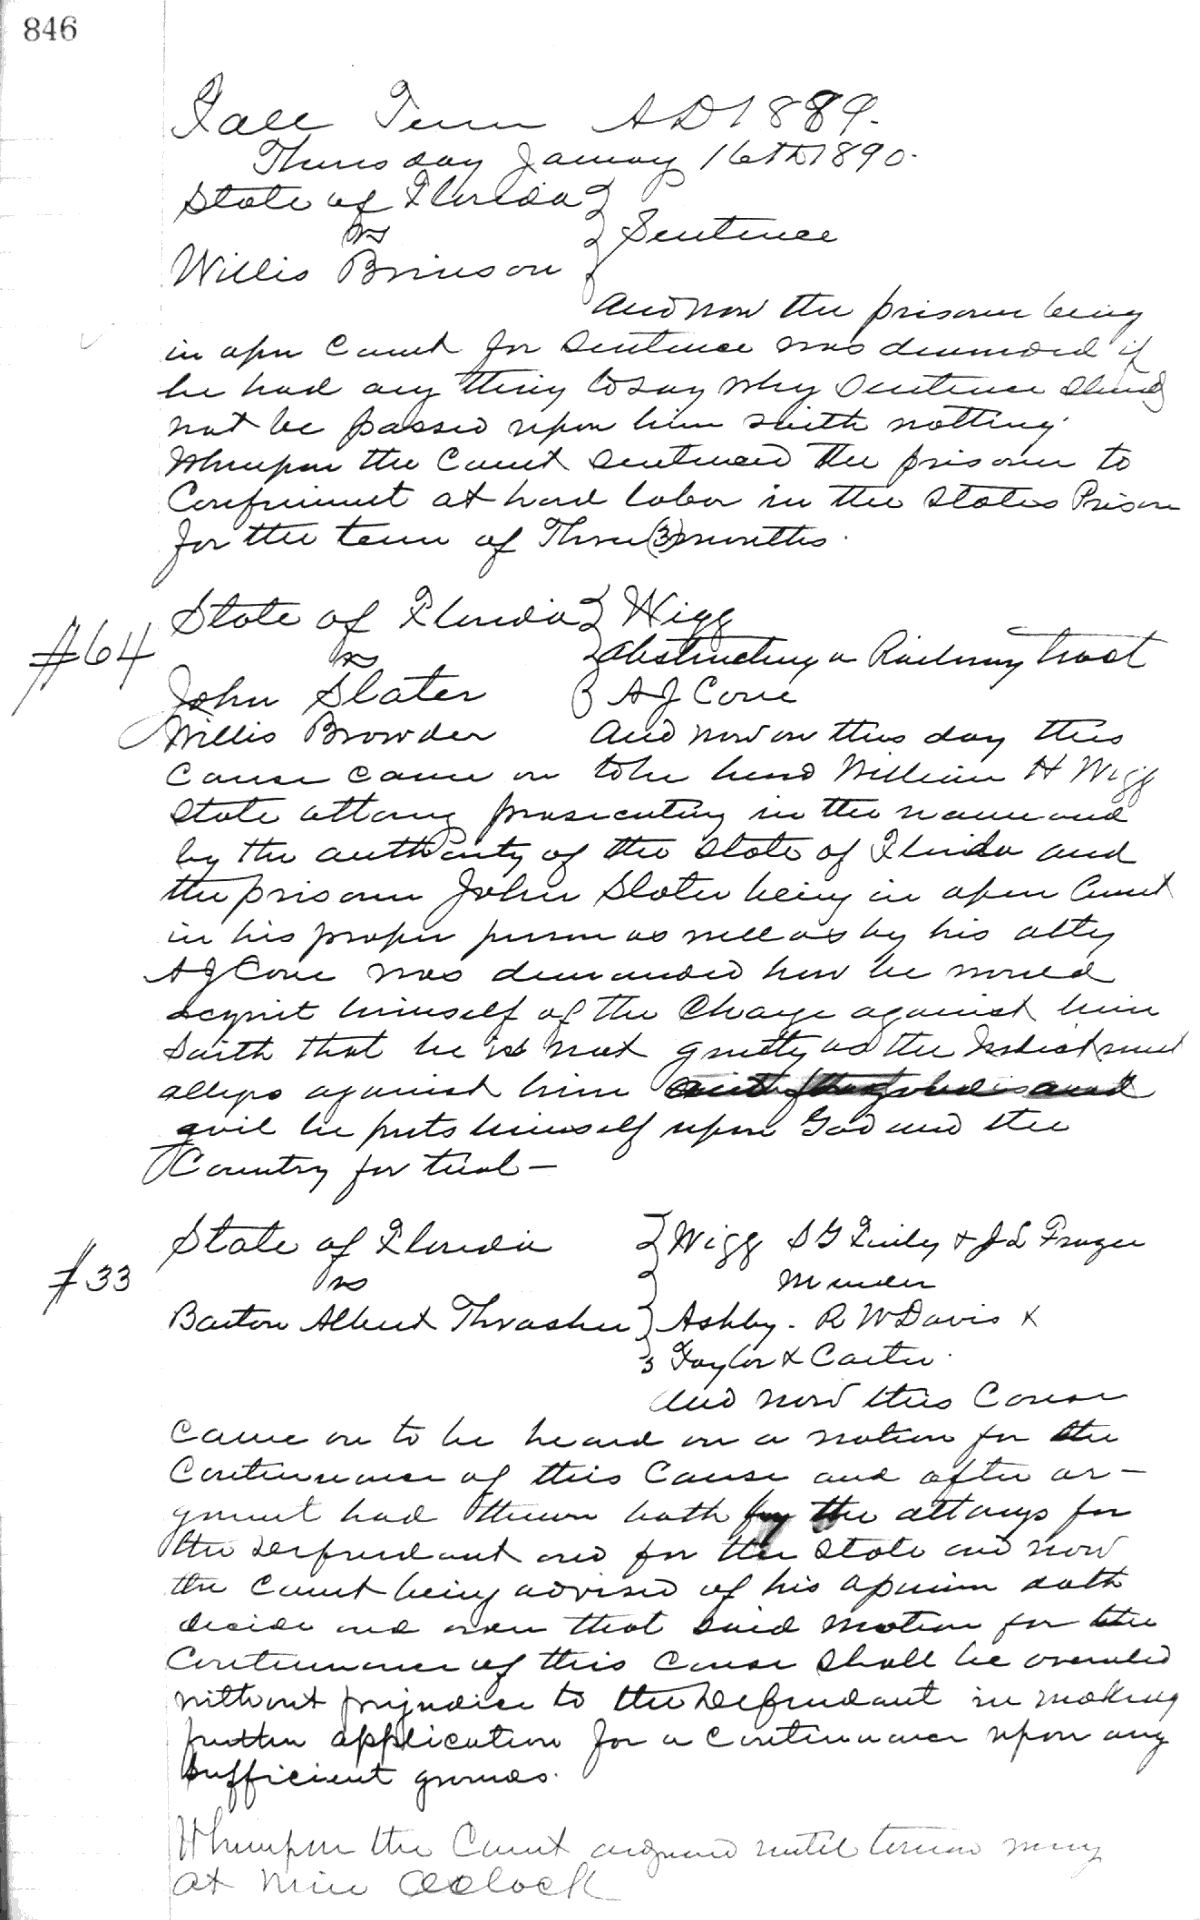 846
Fall Term AD 1889.
Thursday January 16th 1890.
State of Florida
vs
Sentence
Willis Brinson
And now the prisoner being
in open Court for Sentence was demanded if
he had any thing to say why Sentence should
not be passed upon him saith nothing
Whereupon the Court sentenced the prisoner to
Confinement at hard labor in the States Prison
for the term of Three (3) months.
State of Florida Wigg
#64 vs Obstructing a Railway track
John Slater A J Cone
Willis Browder And now on this day this
Cause came on to be heard William H Wigg
State attorney prosecuting in the name and
by the authority of the State of Florida and
the prisoner John Slater being in open Court
in his proper person as well as by his atty
A J Cone was demanded how he would
acquit himself of the Charge against him
Saith that he is not guilty as the Indictment
alleges against him
evil he puts himself upon God and the
Country for trial—
State of Florida Wigg S G & J L Frazee
#33 vs Murder
Barton Albert Thrasher Ashby. R W Davis &
Taylor & Carter.
And now this Cause
Came on to be heard on a motion for the
Continuance of this Cause and after ar-
gument had thereon both by the attorneys for
the Defendant and for the State and now
the Court being advised of his opinion doth
decide and order that said motion for the
Continuance of this Cause shall be overruled
without prejudice to the Defendant in making
further application for a Continuance upon any
sufficient grounds.
Whereupon the Court adjourned until morning
at Nine Oclock